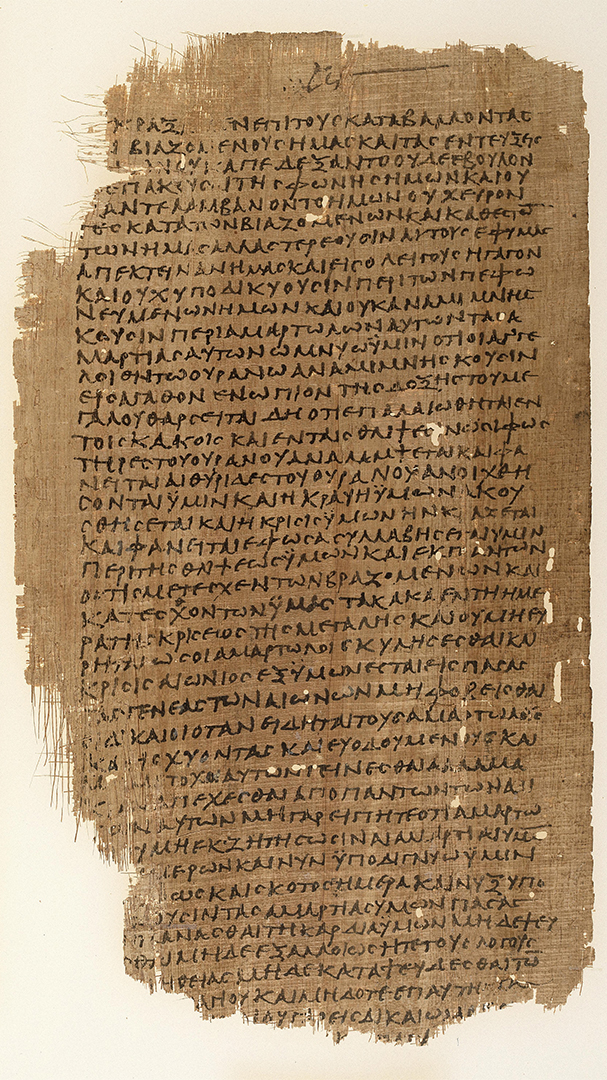 ΝΕΠΙΤΟΥΣΚΑΤΑΒΑΛΛΟΝΤΑΣ
ΒΙΑΖΟΜΕΝΟΥΣΗΜΑΣΚΑΙΤΑΣΕΝΤΕΥΞΕΙΣ
ΑΠΕΔΕΞΑΝΤΟΟΥΔΕΕΒΟΥΛΟΝ
ΕΠΑΚΟΥΣΑΙΤΗΣΦΩΝΗΣΗΜΩΝΚΑΙΟΥ
ΑΝΤΕΛΑΜΒΑΝΟΝΤΟΗΜΩΝΟΥΧΕΥΡΟΝ
ΤΕΣΚΑΤΑΤΩΝΒΙΑΖΟΜΕΝΩΝΚΑΙΚΑΤΕΣΘ
ΤΩΝΗΜΑΣΑΛΛΑΣΤΕΡΕΟΥΣΙΝΑΥΤΟΥΣΕΦΥΜΑΣ
ΑΠΕΚΤΕΙΝΑΝΗΜΑΣΚΑΙΕΙΣΟΛΕΙΓΟΥΣΗΓΑΓΟΝ
ΚΑΙΟΥΧΥΠΟΔΙΚΥΟΥΣΙΝΠΕΡΙΤΩΝΠΕΦΟ
ΝΕΥΜΕΝΩΝΗΜΩΝΚΑΙΟΥΚΑΝΑΜΙΜΝΗΣ
ΚΟΥΣΙΝΠΕΡΙΑΜΑΡΤΩΛΩΝΑΥΤΩΝΤΑΣΑ
ΜΑΡΤΙΑΣΑΥΤΩΝΟΜΝΥΩΫΜΙΝΟΤΙΟΙΑΓΓΕ
ΛΟΙΕΝΤΩΟΥΡΑΝΩΑΝΑΜΙΜΝΗΣΚΟΥΣΙΝ
ΕΙΣΑΓΑΘΟΝΕΝΩΠΙΟΝΤΗΣΔΟΞΗΣΤΟΥΜΕ
ΓΑΛΟΥΘΑΡΣΕΙΤΑΙΔΗΟΤΙΕΠΑΛΑΙΩΘΗΤΑΙΕΝ
ΤΟΙΣΚΑΚΟΙΣΚΑΙΕΝΤΑΙΣΘΛΙΨΕΣΙΝΩΣΙΦΩΣ
ΤΗΡΕΣΤΟΥΟΥΡΑΝΟΥΑΝΑΛΑΜΨΕΤΑΙΚΑΙΦΑ
ΝΕΙΤΑΙΑΙΘΥΡΙΔΕΣΤΟΥΟΥΡΑΝΟΥΑΝΟΙΧΘΗ
ΣΟΝΤΑΙΫΜΙΝΚΑΙΗΚΡΑΥΓΗΫΜΩΝΑΚΟΥ
ΣΘΗΣΕΤΑΙΚΑΙΗΚΡΙΣΙΣΫΜΩΝΗΝΚΡΑΖΕΤΑΙ
ΚΑΙΦΑΝΕΙΤΑΙΕΦΟΣΑΣΥΛΛΑΒΗΣΕΤΑΙΥΜΙΝ
ΠΕΡΙΤΗΣΘΛΙΨΕΩΣΫΜΩΝΚΑΙΕΚΠΑΝΤΩΝ
ΟΣΤΙΣΜΕΤΕΣΧΕΝΤΩΝΒΙΑΖΟΜΕΝΩΝΚΑΙ
ΚΑΤΕΣΘΟΝΤΩΝΫΜΑΣΤΑΚΑΚΑΕΝΤΗΗΜΕ
ΡΑΤΗΣΚΡΙΣΕΩΣΤΗΣΜΕΓΑΛΗΣΚΑΙΟΥΜΗΕΥ
ΡΗΤΑΙΩΣΟΙΑΜΑΡΤΩΛΟΙΣΚΥΛΗΣΕΣΘΑΙΚΑΙ
ΚΡΙΣΙΣΑΙΩΝΙΟΣΕΞΥΜΩΝΕΣΤΑΙΕΙΣΠΑΣΑΣ
ΤΑΣΓΕΝΕΑΣΤΩΝΑΙΩΝΩΝΜΗΦΟΒΕΙΣΘΑΙ
ΔΙΚΑΙΟΙΟΤΑΝΕΙΔΗΤΑΙΤΟΥΣΑΜΑΡΤΩΛΟΥΣ
ΧΥΟΝΤΑΣΚΑΙΕΥΟΔΟΥΜΕΝΟΥΣΚΑΙ
ΤΟΧΟΙΑΥΤΩΝΓΕΙΝΕΣΘΑΙΑΛΛΑΜΑ
ΑΠΕΧΕΣΘΑΙΑΠΟΠΑΝΤΩΝΤΩΝΑΔΙ
ΑΥΤΩΝΜΗΓΑΡΕΙΠΗΤΕΟΤΙΑΜΑΡΤΩ
ΥΜΗΕΚΖΗΤΗΣΩΣΙΝΑΙΑΜΑΡΤΙΑΙΥΜ
ΜΕΡΩΝΚΑΙΝΥΝΫΠΟΔΙΓΝΥΩΫΜΙΝ
ΩΣΚΑΙΣΚΟΤΟΣΗΜΕΡΑΚΑΙΝΥΞΥΠΟ
ΟΥΣΙΝΤΑΣΑΜΑΡΤΙΑΣΥΜΩΝΠΑΣΑΣ
ΠΛΑΝΑΣΘΑΙΤΗΚΑΡΔΙΑΥΜΩΝΜΗΔΕΨΕΥ
ΜΗΔΕΕΞΑΛΛΟΙΩΣΗΤΕΤΟΥΣΛΟΓΟΥΣ
ΗΘΕΙΑΣΜΗΔΕΚΑΤΑΨΕΥΔΕΣΘΑΙΤΩ
ΓΙΟΥΚΑΙΜΗΔΟΤΕΕΠΑΥΤΗ